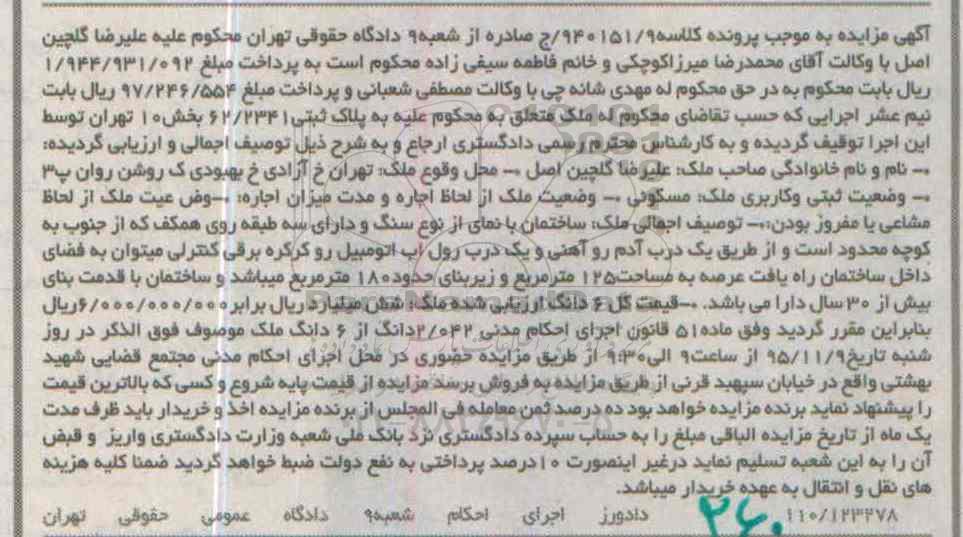 آگهی مزایده به موجب پرونده کلاسه۹۴۰۱۵۱/۹/ج صادره از شعبه۹ دادگاه حقوقی تهران محکوم علیه علیرضا گلچین
اصل با وکالت آقای محمدرضا میرزاکوچکی و خانم فاطمه سیفی زاده محکوم است به پرداخت مبلغ ۱/۹۴۴/۹۳۱/۰۹۲
ریال بابت محکوم به در حق محکوم له مهدی شانه چی با وکالت مصطفی شعبانی و پرداخت مبلغ ۹۷/۲۴۶/۵۵۴ ریال بابت
نیم عشر اجرایی که حسب تقاضای محکوم له ملک متعلق به محکوم علیه به پلاک ثبتی۶۲/۲۳۴۱ بخش۱۰ تهران توسط
این اجرا توقیف گردیده و به کارشناس محترم رسمی دادگستری ارجاع و به شرح ذیل توصیف اجمالی و ارزیابی گردیده:
۰- نام و نام خانوادگی صاحب ملک: علیرضا گلچین اصل ۰- محل وقوع ملک: تهران خ آزادی خ بهبودی ک روشن روان پ۳
۰- وضعیت ثبتی وکاربری ملک: مسکونی ۰- وضعیت ملک از لحاظ اجاره و مدت میزان اجاره: ۰-وض عیت ملک از لحاظ
مشاعی یا مفروز بودن:۰- توصیف اجمالی ملک: ساختمان با نمای از نوع سنگ و دارای سه طبقه روی همکف که از جنوب به
کوچه محدود است و از طریق یک درب آدم رو آهنی و یک درب رول اپ اتومبیل رو کرکره برقی کنترلی میتوان به فضای
داخل ساختمان راه یافت عرصه به مساحت۱۲۵ مترمربع و زیربنای حدود۱۸۰ مترمربع میباشد و ساختمان با قدمت بنای
بیش از ۳۰ سال دارا می باشد. ۰-قیمت کل ۶ دانگ ارزیابی شده ملک: شش میلیارد ریال برابر۶/۰۰۰/۰۰۰/۰۰۰ریال
بنابراین مقرر گردید وفق ماده۵۱ قانون اجرای احکام مدنی ۲/۰۴۲دانگ از ۶ دانگ ملک موصوف فوق الذکر در روز
شنبه تاریخ۹۵/۱۱/۹ از ساعت۹ الی۹:۳۰ از طریق مزایده حضوری در محل اجرای احکام مدنی مجتمع قضایی شهید
بهشتی واقع در خیابان سپهبد قرنی از طریق مزایده به فروش برسد مزایده از قیمت پایه شروع و کسی که بالاترین قیمت
را پیشنهاد نماید برنده مزایده خواهد بود ده درصد ثمن معامله فی المجلس از برنده مزایده اخذ و خریدار باید ظرف مدت
یک ماه از تاریخ مزایده الباقی مبلغ را به حساب سپرده دادگستری نزد بانک ملی شعبه وزارت دادگستری واریز و قبض
آن را به این شعبه تسلیم نماید درغیر اینصورت ۱۰درصد پرداختی به نفع دولت ضبط خواهد گردید ضمنا کلیه هزینه
های نقل و انتقال به عهده خریدار میباشد.
۱۱۰/۱۲۳۴۷۸ دادورز اجرای احکام شعبه۹ دادگاه عمومی حقوقی تهران